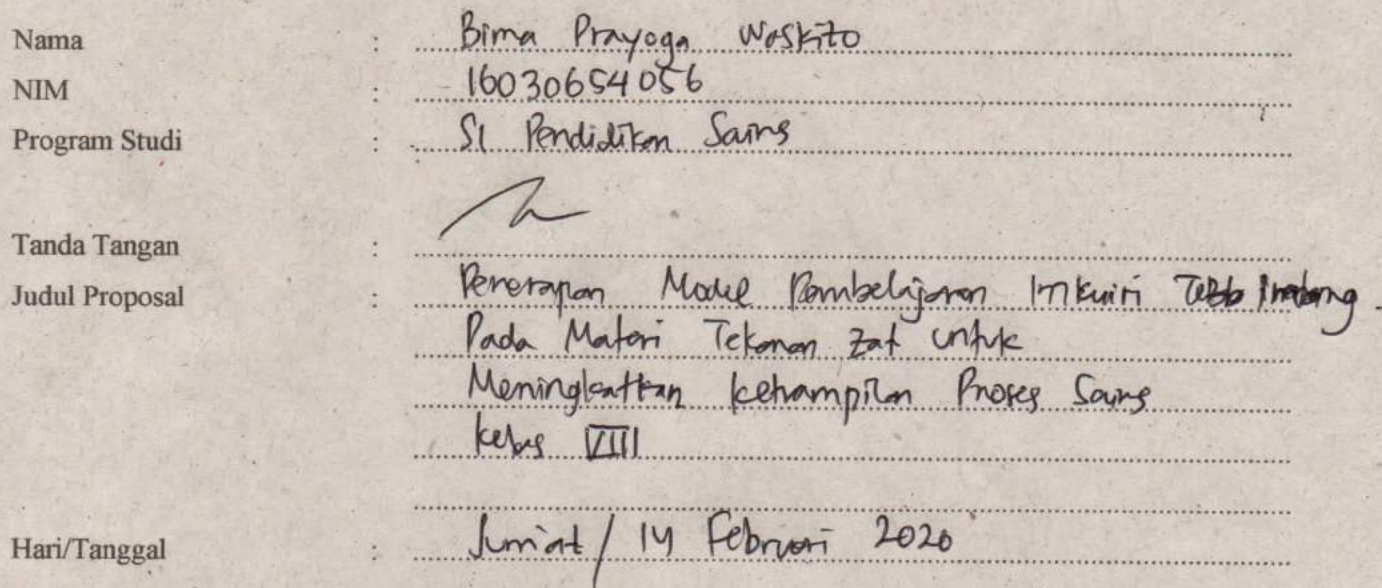 Nama : Bima Prayoga Waskito
NIM : 16030654056
Program Studi : S1 Pendidikan Sains
Tanda Tangan :
Judul Proposal : Penerapan Model Pembelajaran Inkuiri
Pada Materi Tekanan Zat untuk
Meningkatkan ketrampilan Proses Sains
kelas VIII
Hari/Tanggal : Jum'at / 14 Februari 2020